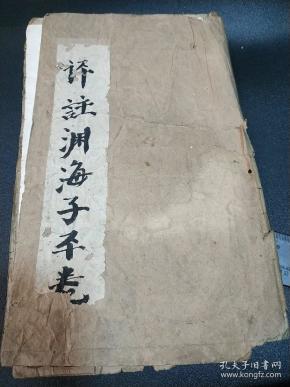 评註渊海子平卷
孔夫子旧书网
www.kongfz.com